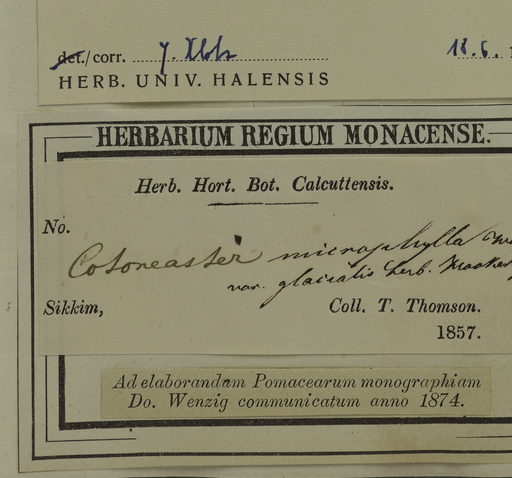 det./corr. J. Klotz 18.6.
HERB. UNIV. HALENSIS
HERBARIUM REGIUM MONACENSE.
Herb. Hort. Bot. Calcuttensis.
No.
Cotoneaster microphylla
var. glacialis herb. Hooker
Sikkim, Coll. T. Thomson.
1857.
Ad elaborandam Pomacearum monographiam
Do. Wenzig communicatum anno 1874.